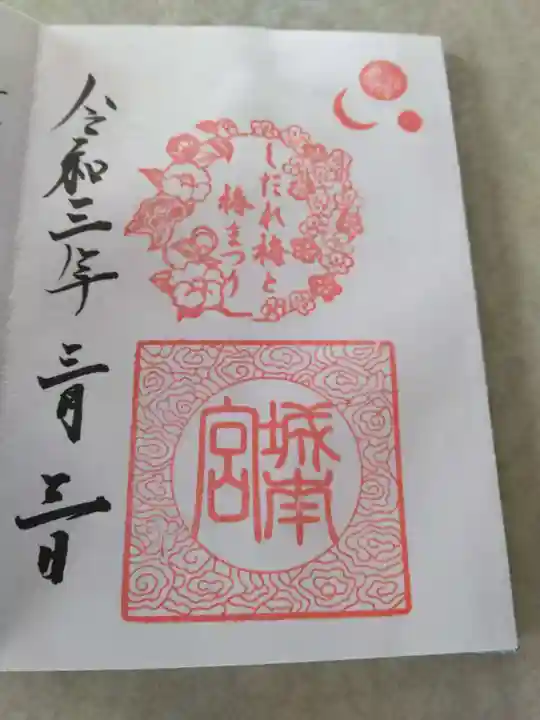 しだれ梅と
椿まつり
城南
宮
令和三年 三月 三日